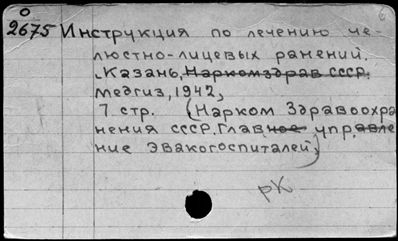 О
2675 Инструкция по лечению че-
люстно-лицевых ранений.
Казань, Наркомздрав СССР.
Медгиз, 1942,
7 стр. (Нарком Здравоохра
нения СССР. Главное управле
ние Эвакогоспиталей)
рК